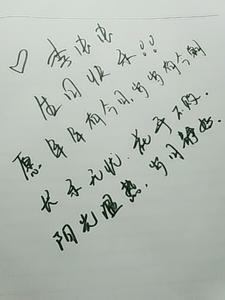 ♡ 李忠忠
生日快乐!!
愿年年有今日,岁岁有今朝
长乐无忧.花与不败.
阳光温热.岁月静好.